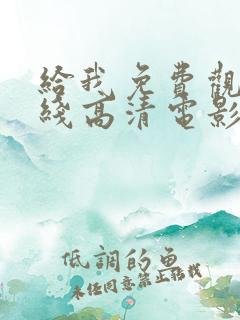 給我免費觀
綫高清電影
低調的魚
未经同意禁止转载